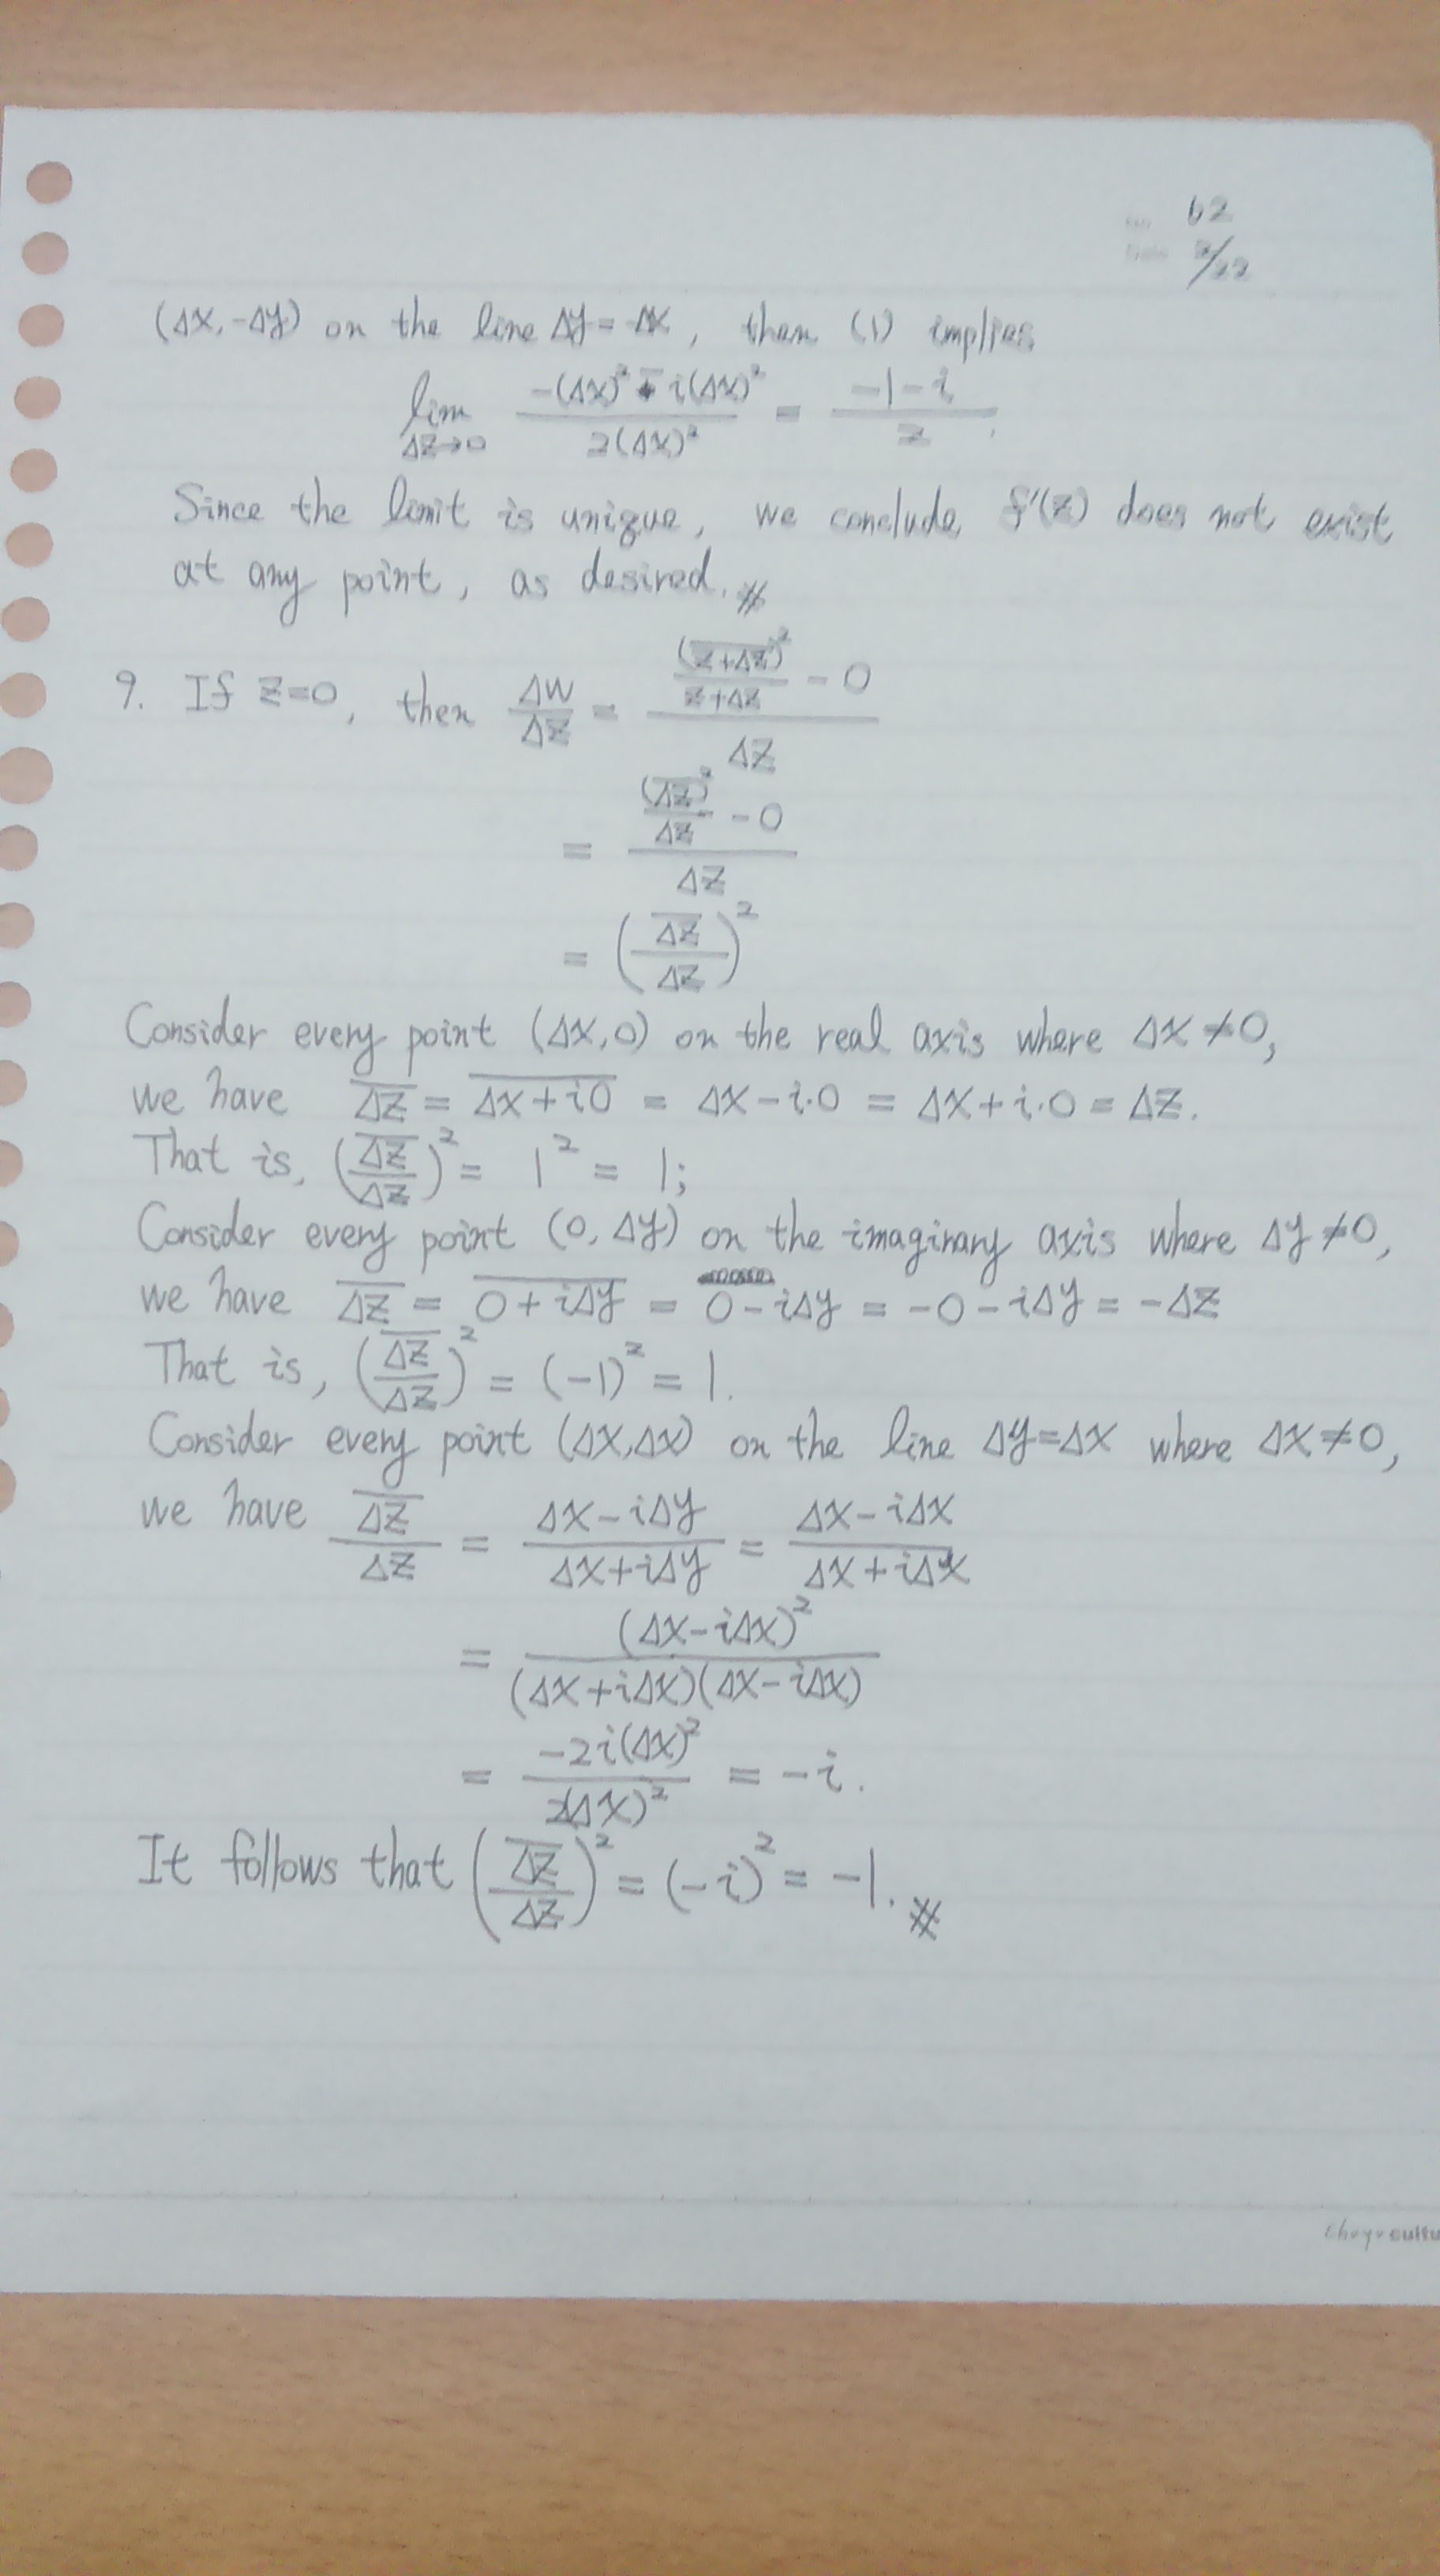 No. 62
Date 2/22
(Δx, -Δy) on the line Δy = -Δx, then (1) implies
lim_{Δz→0} (-(Δx)² - i(Δx)²) / (2(Δx)²) = (-1-i)/2.
Since the limit is unique, we conclude f'(z) does not exist
at any point, as desired. #
9. If z=0, then Δw/Δz = ((\overline{z+Δz})²/(z+Δz) - 0) / Δz
= ((\overline{Δz})²/Δz - 0) / Δz
= (\overline{Δz}/Δz)²
Consider every point (Δx, 0) on the real axis where Δx≠0,
we have \overline{Δz} = \overline{Δx+i0} = Δx-i·0 = Δx+i·0 = Δz.
That is, (\overline{Δz}/Δz)² = 1² = 1;
Consider every point (0, Δy) on the imaginary axis where Δy≠0,
we have \overline{Δz} = \overline{0+iΔy} = 0-iΔy = -0-iΔy = -Δz
That is, (\overline{Δz}/Δz)² = (-1)² = 1.
Consider every point (Δx,Δx) on the line Δy=Δx where Δx≠0,
we have \overline{Δz}/Δz = (Δx-iΔy)/(Δx+iΔy) = (Δx-iΔx)/(Δx+iΔx)
= (Δx-iΔx)²/((Δx+iΔx)(Δx-iΔx))
= -2i(Δx)²/(2(Δx)²) = -i.
It follows that (\overline{Δz}/Δz)² = (-i)² = -1. #